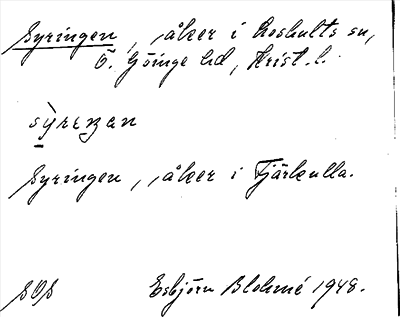 Syringen, åker i Loshults sn,
Ö. Göinge hd, Krist. l.
sỳrezan
Syringen, åker i Tjärkulla.
SOS Esbjörn Blohmé 1948.